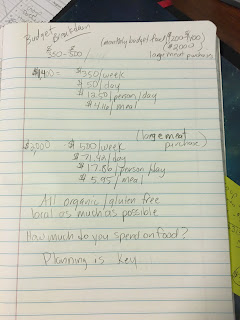 Budget Breakdown
(monthly budget food $1200-$1400)
($2000)
$350-$500/
large meat purchase
$1400 = $350/week
$50/day
$12.50/person/day
$4.16/meal
(large meat purchase)
$2,000 - $500/week
$71.42/day
$17.86/person/day
$5.95/meal
All organic/gluten free
local as much as possible
How much do you spend on food?
Planning is key